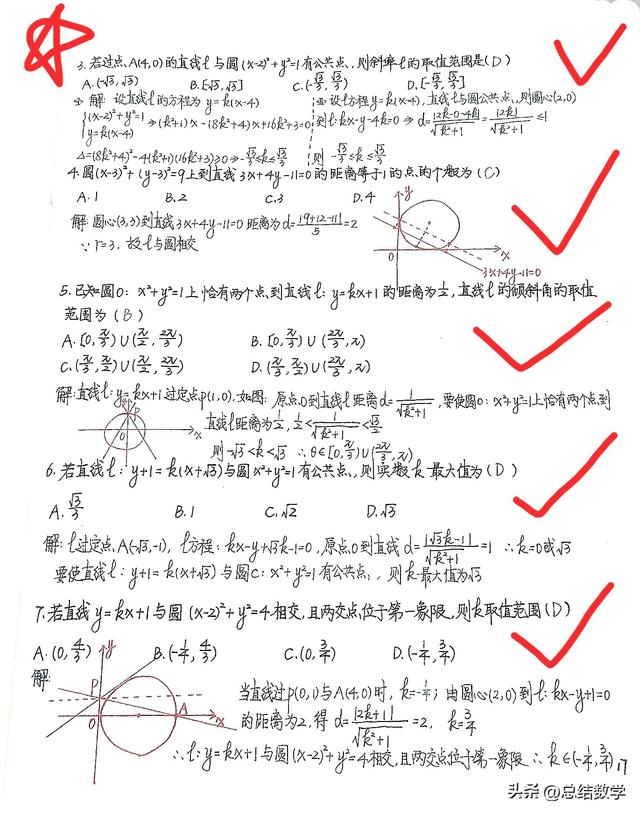 3. 若过点A(4,0)的直线l与圆(x-2)²+y²=1有公共点,则斜率l的取值范围是(D)
A. (-√3,√3) B. [-√3,√3] C. (-√3/3,√3/3) D. [-√3/3,√3/3]
① 解: 设直线l的方程为y=k(x-4) ② 设l方程y=k(x-4),直线l与圆公共点,则圆心(2,0)
{(x-2)²+y²=1 y=k(x-4) ⇒(k²+1)x-(8k²+4)x+16k²+3=0 到l:kx-y-4k=0 ⇒ d=|2k-0-4k|/√(k²+1)=|2k|/√(k²+1)≤1
Δ=(8k²+4)²-4(k²+1)(16k²+3)≥0⇒-√3/3≤k≤√3/3 则 -√3/3≤k≤√3/3
4. 圆(x-3)²+(y-3)²=9上到直线3x+4y-11=0的距离等于1的点的个数为(C)
A. 1 B. 2 C. 3 D. 4
解: 圆心(3,3)到直线3x+4y-11=0距离为d=|9+12-11|/5=2
∵r=3, 故l与圆相交
y
0
x
3x+4y-11=0
5. 已知圆O: x²+y²=1上恰有两个点到直线l: y=kx+1的距离为1/2,直线l的倾斜角的取值
范围为(B)
A. [0,π/3)∪(π/2,2π/3) B. [0,π/3)∪(2π/3,π)
C. (π/3,π/2)∪(π/2,2π/3) D. (π/3,π/2)∪(2π/3,π)
解: 直线l: y=kx+1过定点P(1,0),如图: 原点O到直线l距离d=1/√(k²+1),要使圆O: x²+y²=1上恰有两个点到
直线l距离为1/2, 1/2<1/√(k²+1)<√3/2
则-√3<k<√3 ∴θ∈[0,π/3)∪(2π/3,π)
P
0
x
6. 若直线l: y+1=k(x+√3)与圆x²+y²=1有公共点,则实数k最大值为(D)
A. √3/3 B. 1 C. √2 D. √3
解: l过定点A(-√3,-1), l方程: kx-y+√3k-1=0, 原点O到直线d=|√3k-1|/√(k²+1)=1 ∴k=0或√3
要使直线l: y+1=k(x+√3)与圆C: x²+y²=1有公共点, 则k最大值为√3
7. 若直线y=kx+1与圆(x-2)²+y²=4相交,且两交点位于第一象限,则k取值范围(D)
A. (0,4/3) B. (-1/4,4/3) C. (0,3/4) D. (-1/4,3/4)
解:
y
P
0
A
x
当直线过P(0,1)与A(4,0)时, k=-1/4; 由圆心(2,0)到l: kx-y+1=0
的距离为2,得 d=|2k+1|/√(k²+1)=2, k=3/4
∴l: y=kx+1与圆(x-2)²+y²=4相交,且两交点位于第一象限 ∴k∈(-1/4,3/4)
17
头条 @总结数学